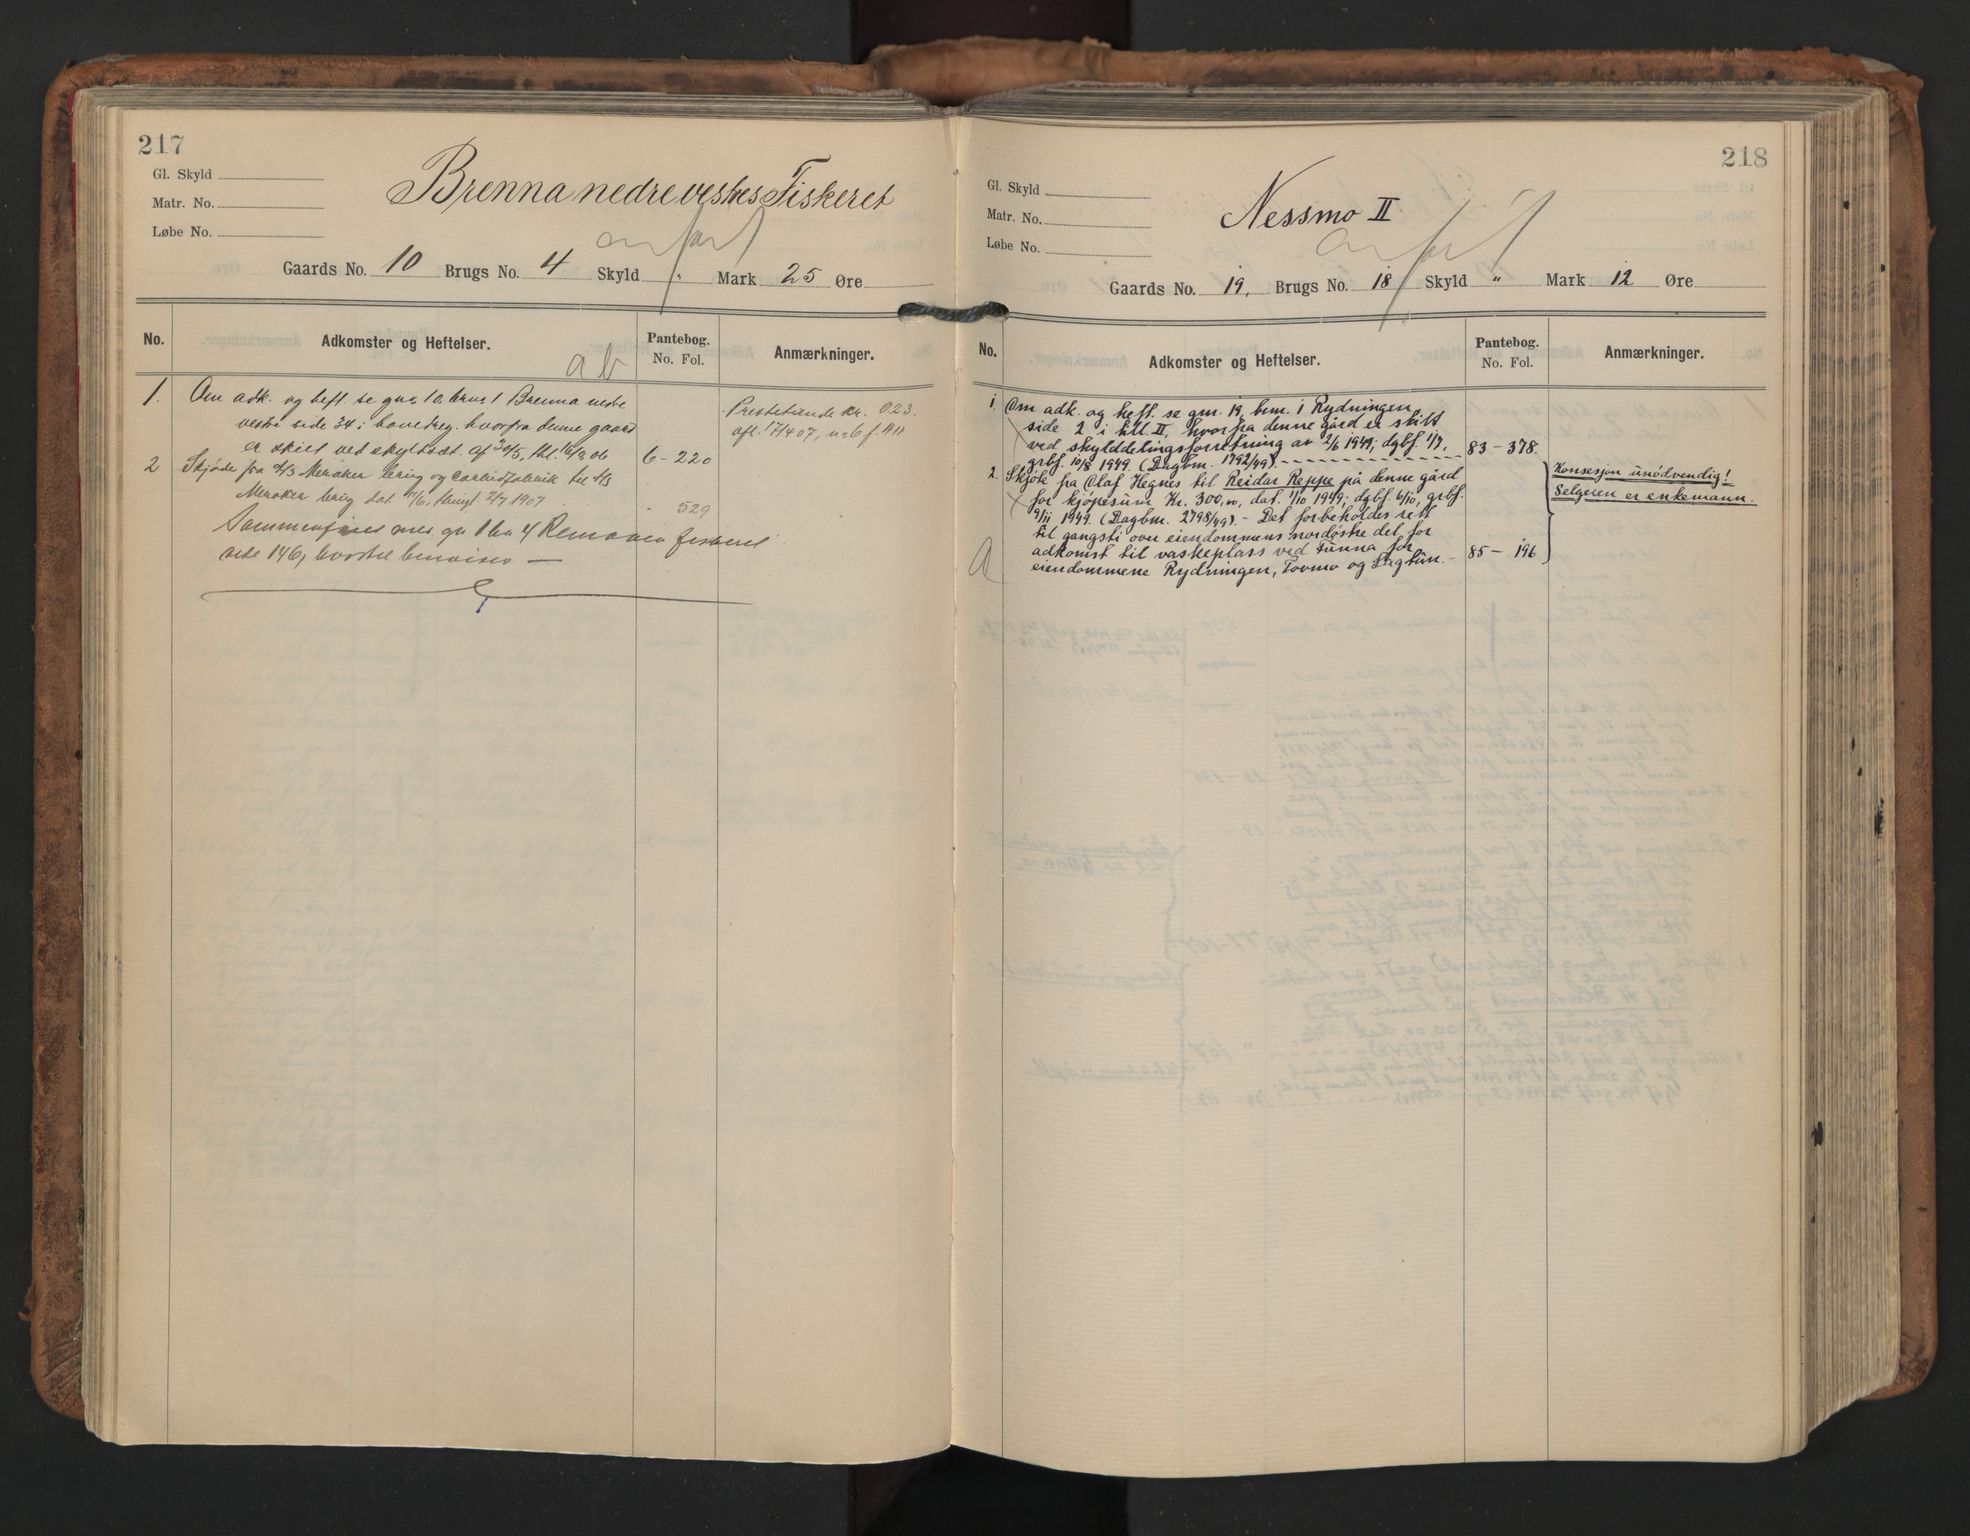 217
Gl. Skyld
Matr. No.
Løbe No.
Brenna nedre vestres Fiskeret
anført
Gaards No. 10 Brugs No. 4 Skyld " Mark 25 Øre
No. Adkomster og Heftelser. Pantebog. No. Fol. Anmærkninger.
a b
1. Om adk. og heft. se gn. 10, brn. 1 Brenna nedre
vestre side 34 i hovedreg. hvorfra denne gaard
er skilt ved skylddt. af 30/5, thl. 16/8 06 6-220
Prestetiende kr. 0.23.
afl. 17/4 07, n. 6 f. 411
2 Skjøde fra A/S Meraker brug og Carbidfabrik til A/S
Meraker brug dat. 11/6, tingl. 2/7 1907 " 529
Sammenføiet med gn 1 bn 4 fiskeret
side 146, hvortil henvises —
218
Gl. Skyld
Matr. No.
Løbe No.
Nessmo II
anført
Gaards No. 19, Brugs No. 18 Skyld " Mark 12 Øre
No. Adkomster og Heftelser. Pantebog. No. Fol. Anmærkninger.
1. Om adk. og heft. se gnr. 19, bnr. 1 Rydningen
side 2 i till. II, hvorfra denne gård er skilt
ved skylddelingsforretning av 2/6 1949; dgbf. 1/7, 83-378.
grbf. 10/8 1949. (Dagbnr. 1792/49).
2. Skjøte fra Olaf Hegnes til Reidar Reppe på denne gård
for kjøpesum kr. 300,00, dat. 1/10 1949; dgbf. 6/10, grbf.
9/11 1949. (Dagbnr. 2798/49). - Det forbeholdes rett
til gangsti over eiendommens nordøstre del for
adkomst til vaskeplass ved Funna for 85-196
eiendommene Rydningen, Tovmo og Dagtun. -
Konsesjon unødvendig!
Selgeren er enkemann.
a